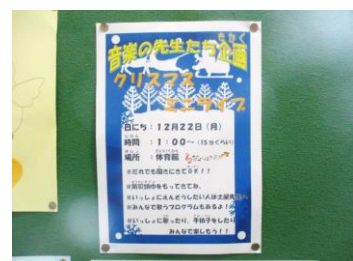 音楽の先生たち企画
きかく
クリスマス
ミニライブ
日にち：12月22日（月）
時間：1：00～（15分ぐらい）
場所：体育館
※だれでも聞きにきてOK！！
※防災頭巾をもってきてね。
※いっしょにえんそうしたい人は土屋先生へ
※みんなで歌うプログラムもあるよ！
※いっしょに歌ったり、手拍子をしたり
みんなで楽しもう！！